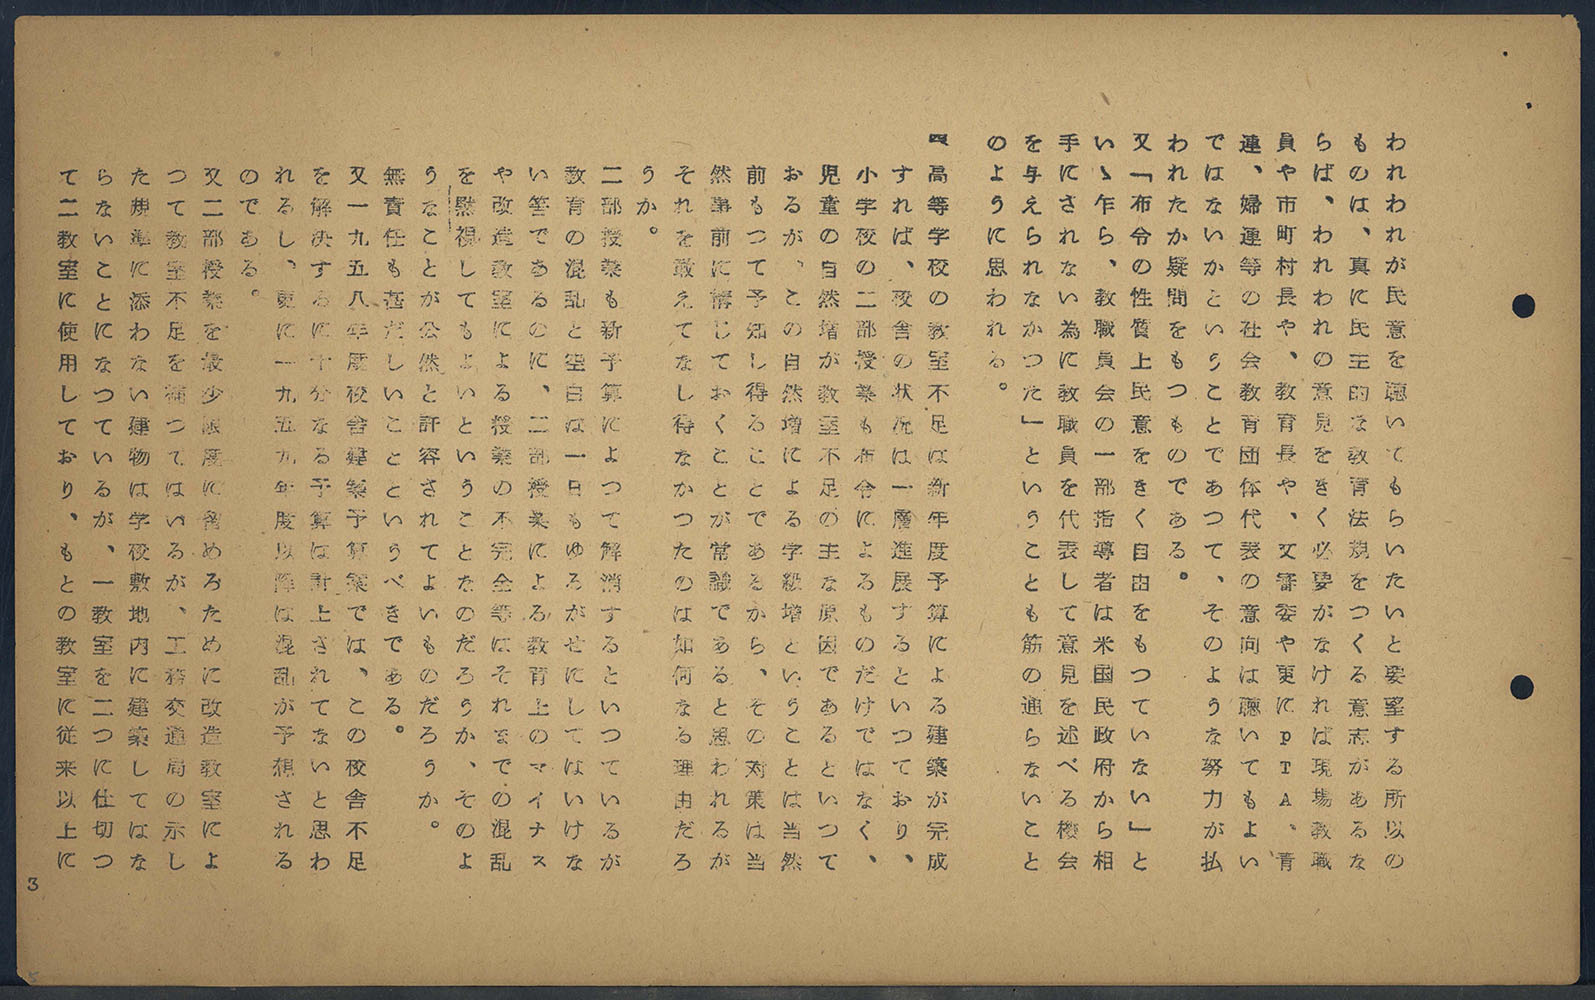 われわれが民意を聴いてもらいたいと要望する所以の
ものは、真に民主的な教育法規をつくる意志があるな
らば、われわれの意見をきく必要がなければ現場教職
員や市町村長や、教育長や、文審委や更にPTA、青
連、婦連等の社会教育団体代表の意向は聴いてもよい
ではないかということであつて、そのような努力が払
われたか疑問をもつものである。
又「布令の性質上民意をきく自由をもつていない」と
いゝ乍ら、教職員会の一部指導者は米国民政府から相
手にされない為に教職員を代表して意見を述べる機会
を与えられなかつた」ということも筋の通らないこと
のように思われる。
四高等学校の教室不足は新年度予算による建築が完成
すれば、校舎の状況は一層進展するといつており、
小学校の二部授業も布令によるものだけではなく、
児童の自然増が教室不足の主な原因であるといつて
おるが、この自然増による学級増ということは当然
前もつて予知し得ることであるから、その対策は当
然事前に講じておくことが常識であると思われるが
それを敢えてなし得なかつたのは如何なる理由だろ
うか。
二部授業も新予算によつて解消するといつているが
教育の混乱と空白は一日もゆるがせにしてはいけな
い筈であるのに、二部授業による教育上のマイナス
や改造教室による授業の不完全等はそれまでの混乱
を黙視してもよいということなのだろうか、そのよ
うなことが公然と許容されてよいものだろうか。
無責任も甚だしいことというべきである。
又一九五八年度校舎建築予算案では、この校舎不足
を解決するに十分なる予算は計上されてないと思わ
れるし、更に一九五九年度以降は混乱が予想される
のである。
又二部授業を最少限度に留めるために改造教室によ
つて教室不足を補つてはいるが、工務交通局の示し
た規準に添わない建物は学校敷地内に建築してはな
らないことになつているが、一教室を二つに仕切つ
て二教室に使用しており、もとの教室に従来以上に
3
5